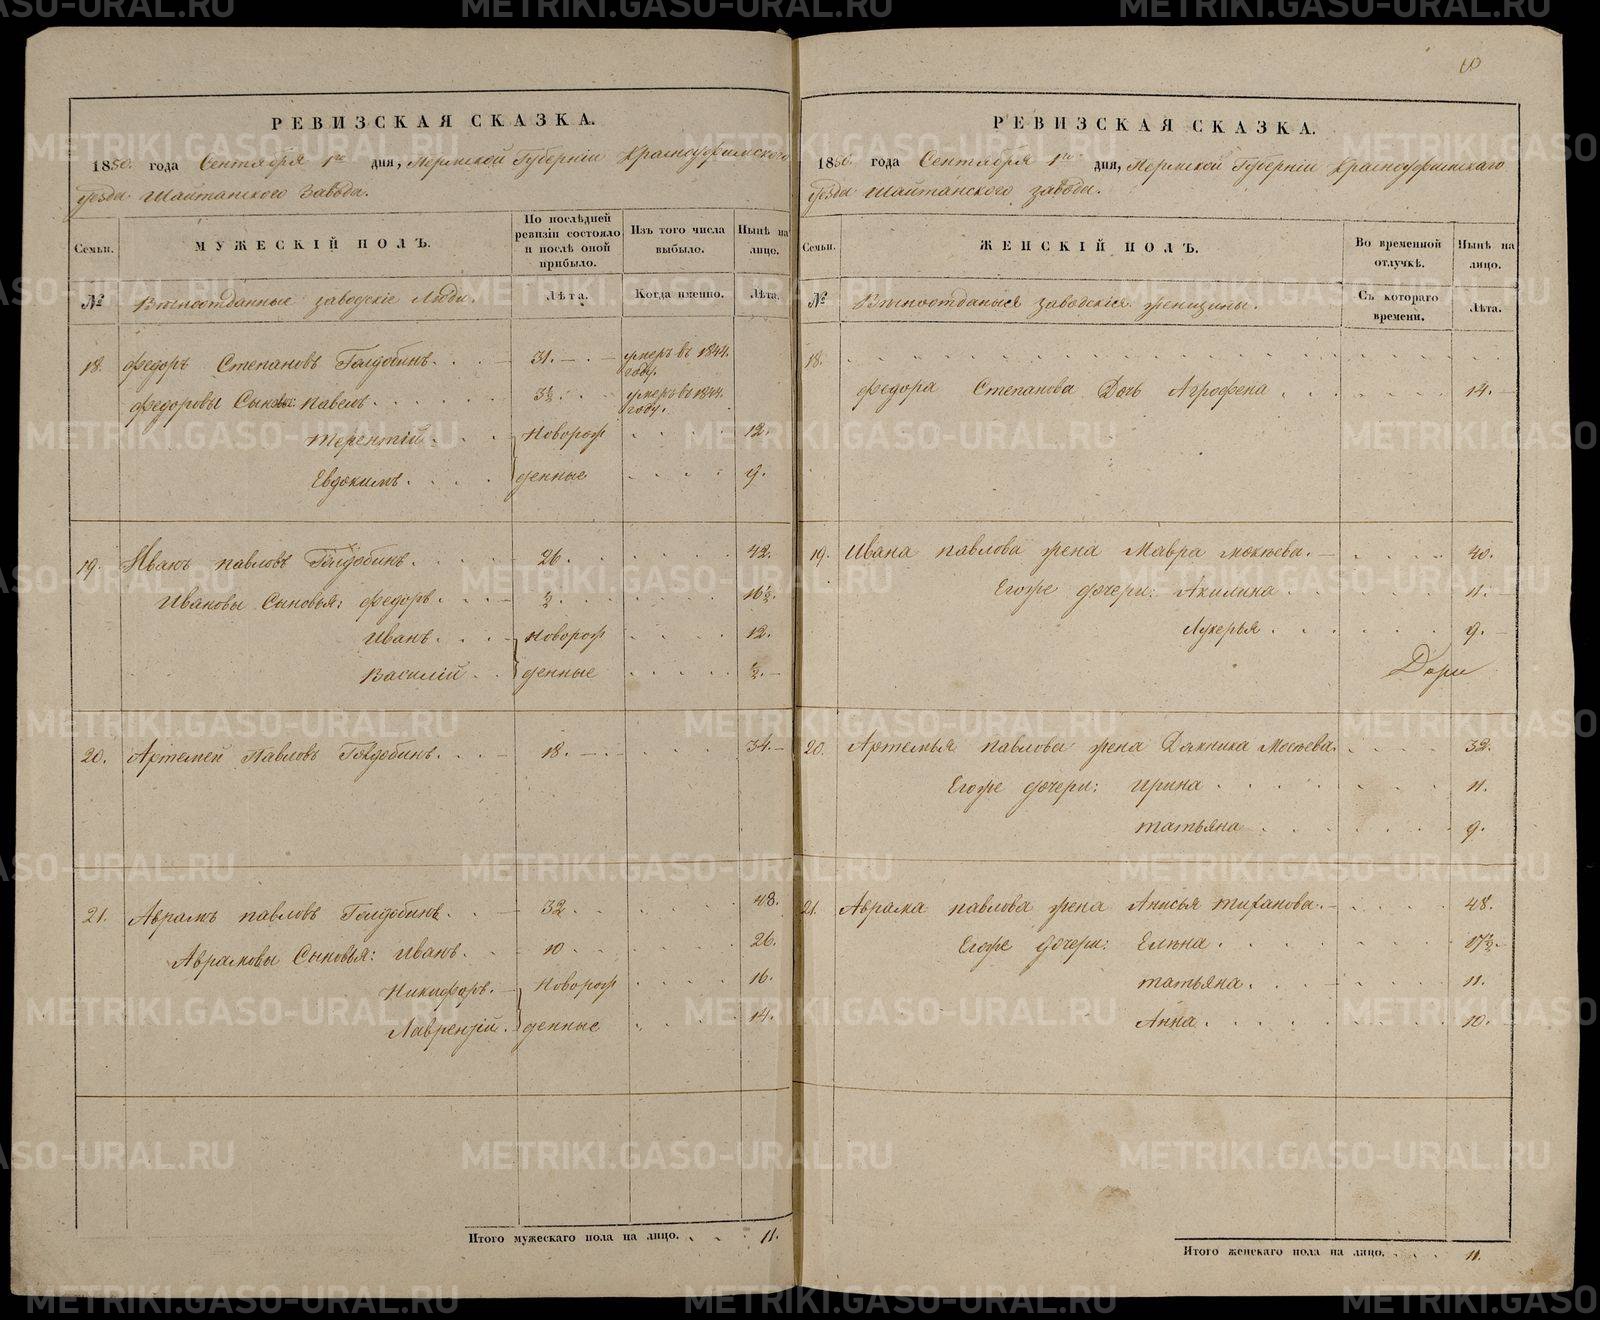 РЕВИЗСКАЯ СКАЗКА.
1850. года Сентября 1го дня, Пермской Губернiи Красноуфимского
уезда Шайтанского Завода.
Семьи.
МУЖЕСКIЙ ПОЛЪ.
По послѣдней ревизiи состояло и послѣ оной прибыло.
Изъ того числа выбыло.
Нынѣ на лицо.
№
заводскiе Люди.
Лѣта.
Когда именно.
Лѣта.
18. Федоръ Степановъ Голдобинъ. 31. умеръ въ 1844. году.
Федоровы Сыновья: Павелъ. 3½. умеръ въ 1844. году.
Терентiй. Новорож 12.
Евдокимъ. денные 9.
19. Иванъ павловъ Голдобинъ. 26. 42.
Ивановы Сыновья: Федоръ. ½. 16½.
Иванъ. Новорож 12.
Василiй. денные ½.
20. Артемей Павловъ Голдобинъ. 18. 34.
21. Аврамъ павловъ Голдобинъ. 32. 48.
Аврамовы Сыновья: Иванъ. 10. 26.
Никифоръ. Новорож 16.
Лаврентiй. денные 14.
Итого мужескаго пола на лицо. 11.
РЕВИЗСКАЯ СКАЗКА.
1850. года Сентября 1го дня, Пермской Губернiи Красноуфимскаго
уезда Шайтанского завода.
Семьи.
ЖЕНСКIЙ ПОЛЪ.
Во временной отлучкѣ.
Нынѣ на лицо.
№
заводскiя женщины.
Съ котораго времени.
Лѣта.
18.
Федора Степанова Дочь Агрофена 14.
19. Ивана павлова жена Мавра 40.
Егоже дочери: Акилина 11.
Лукерья 9.
20. Артемья павлова жена Мосѣева. 32.
Егоже дочери: Ирина 11.
татьяна 9.
21. Аврама павлова жена Анисья 48.
Егоже дочери: Елѣна 17½.
татьяна 11.
Анна 10.
Итого женскаго пола на лицо. 11.
METRIKI.GASO-URAL.RU